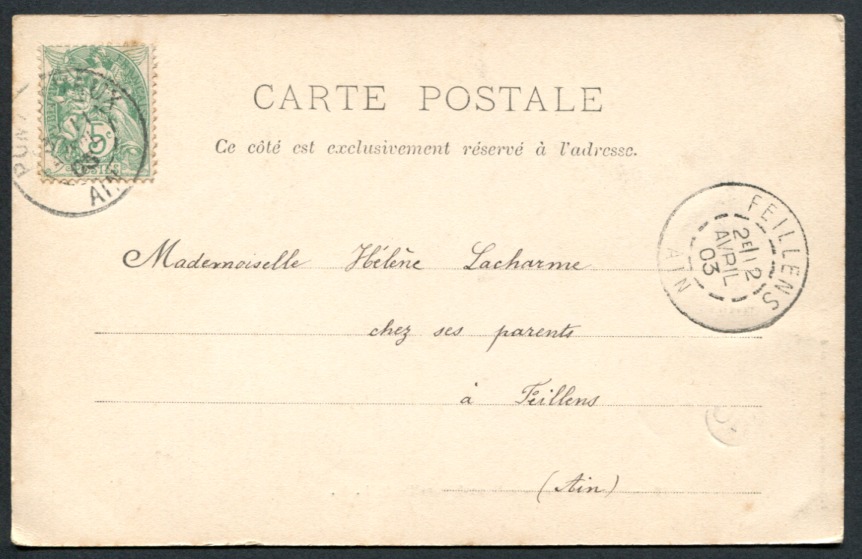 CARTE POSTALE
Ce côté est exclusivement réservé à l'adresse.
5
AIN
FEILLENS
2E/12
AVRIL
03
AIN
Mademoiselle Hélène Lacharme
chez ses parents
à Feillens
(Ain)